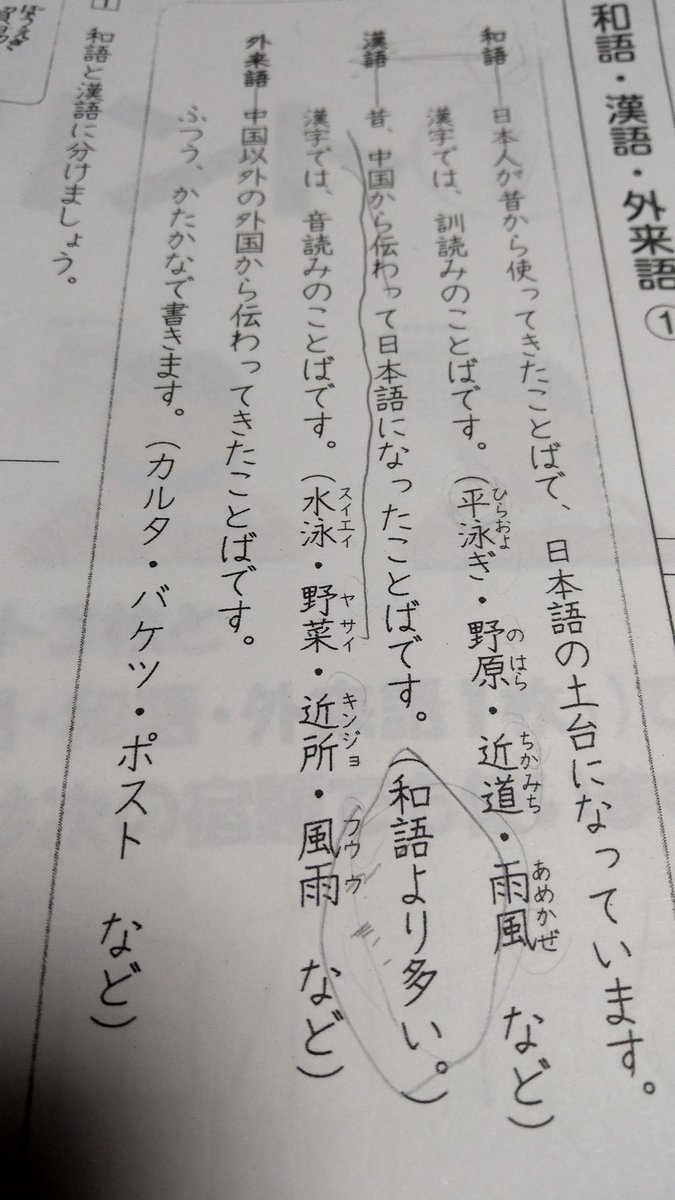 和語・漢語・外来語 ①
和語―日本人が昔から使ってきたことばで、日本語の土台になっています。
漢字では、訓読みのことばです。(平泳ぎ・野原・近道・雨風 など)
ひらおよ
の はら
ちかみち
あめかぜ
漢語―昔、中国から伝わって日本語になったことばです。(和語より多い。)
漢字では、音読みのことばです。(水泳・野菜・近所・風雨 など)
スイエイ
ヤ サイ
キンジョ
フウ ウ
外来語―中国以外の外国から伝わってきたことばです。
ふつう、かたかなで書きます。(カルタ・バケツ・ポスト など)
1 和語と漢語に分けましょう。
ぼうえき
貿易